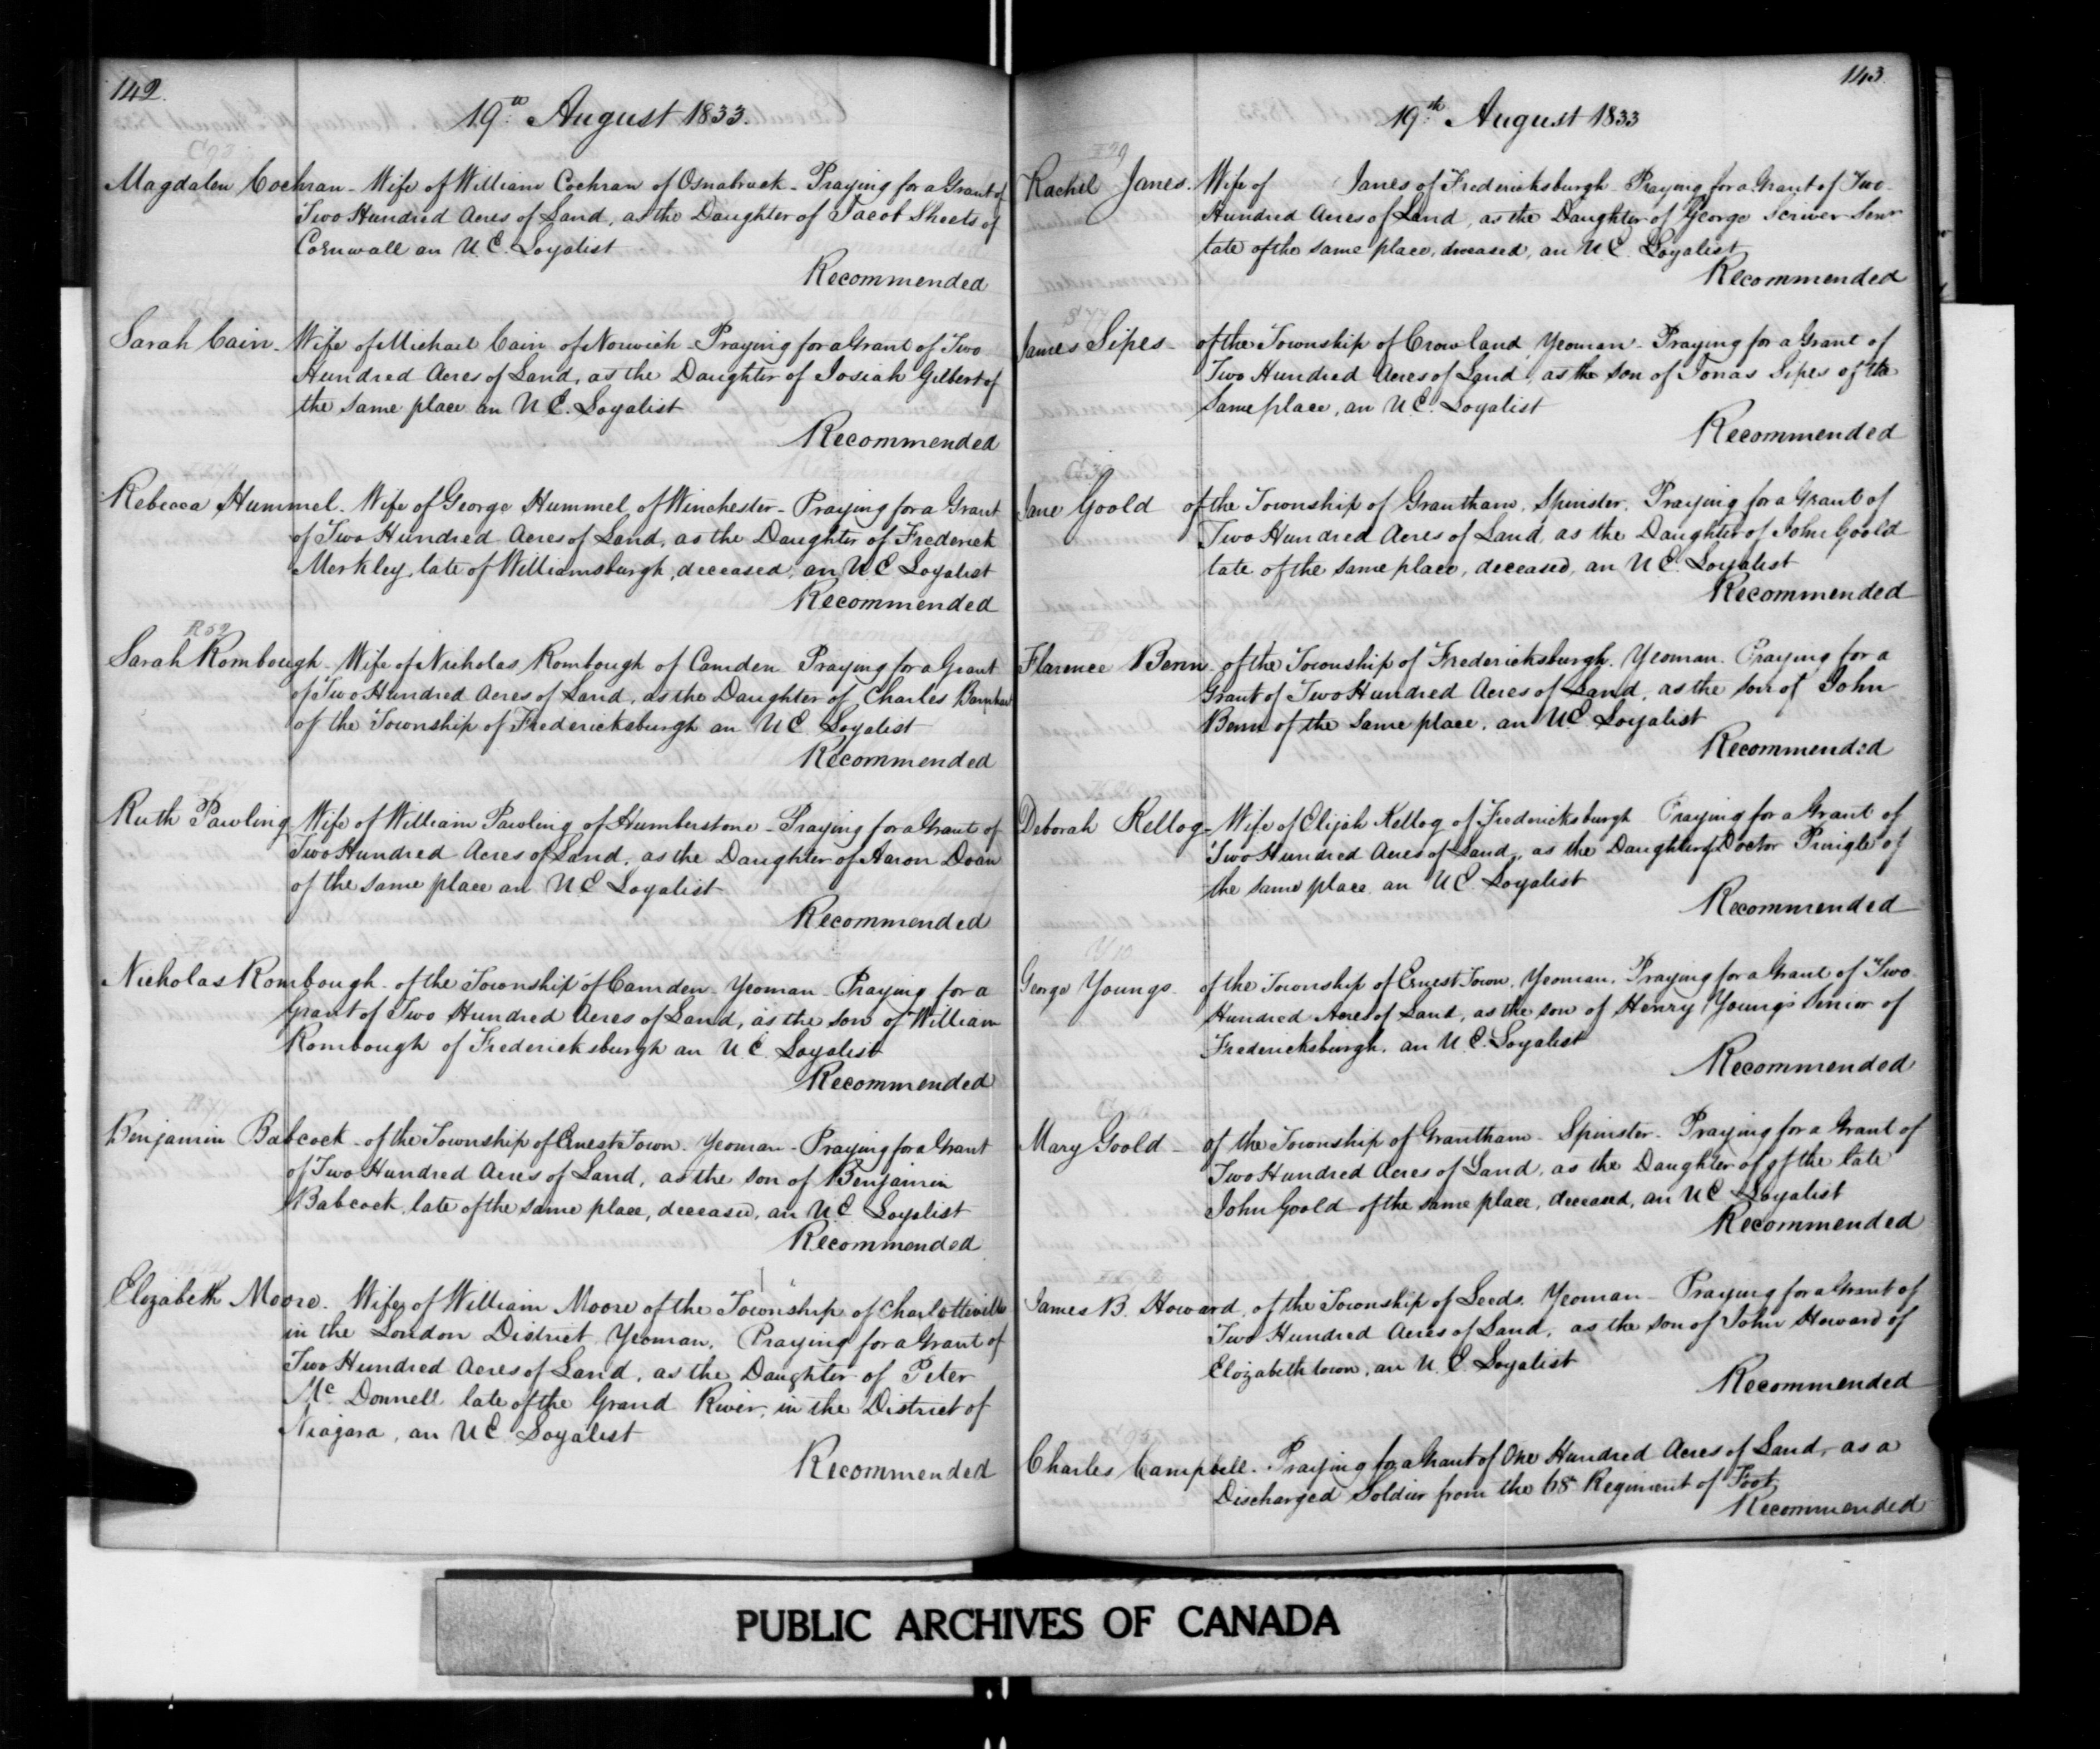 142.
19th August 1833.
Magdalen Cochran - Wife of William Cochran of Osnabruck - Praying for a Grant of
Two Hundred Acres of Land, as the Daughter of Jacob Sheets of
Cornwall an U.E. Loyalist
Recommended
Sarah Cain - Wife of Michael Cain of Norwich - Praying for a Grant of Two
Hundred Acres of Land, as the Daughter of Josiah Gilbert of
the same place an U.E. Loyalist
Recommended
Rebecca Hummel. Wife of George Hummel of Winchester - Praying for a Grant
of Two Hundred Acres of Land, as the Daughter of Frederick
Merkley, late of Williamsburgh, deceased, an U.E Loyalist
Recommended
R 52
Sarah Rombough - Wife of Nicholas Rombough of Camden Praying for a Grant
of Two Hundred Acres of Land, as the Daughter of Charles
of the Township of Fredericksburgh an U.E. Loyalist
Recommended
Ruth Pawling Wife of William Pawling of Humberstone - Praying for a Grant of
Two Hundred Acres of Land, as the Daughter of Aaron Doan
of the same place an U.E Loyalist
Recommended
Nicholas Rombough - of the Township of Camden - Yeoman - Praying for a
Grant of Two Hundred Acres of Land, as the son of William
Rombough of Fredericksburgh an U.E. Loyalist
Recommended
Benjamin Babcock - of the Township of Ernest Town - Yeoman - Praying for a Grant
of Two Hundred Acres of Land, as the son of Benjamin
Babcock, late of the same place, deceased, an U.E. Loyalist
Recommended
Elizabeth Moore. Wife of William Moore of the Township of Charlotteville
in the London District Yeoman. Praying for a Grant of
Two Hundred Acres of Land, as the Daughter of Peter
Mc Donnell late of the Grand River, in the District of
Niagara, an U.E. Loyalist
Recommended
143.
19th August 1833
Rachel Janes. Wife of Janes of Fredericksburgh - Praying for a Grant of Two
Hundred Acres of Land, as the Daughter of George Scriver Senr
late of the same place, deceased, an U.E. Loyalist
Recommended
S 77
James Sipes - of the Township of Crowland Yeoman - Praying for a Grant of
Two Hundred Acres of Land, as the son of Jonas Sipes of the
same place, an U.E. Loyalist
Recommended
Jane Goold of the Township of Grantham, Spinster. Praying for a Grant of
Two Hundred Acres of Land, as the Daughter of John Goold
late of the same place, deceased, an U.E. Loyalist
Recommended
Florence Benn - of the Township of Fredericksburgh. Yeoman. Praying for a
Grant of Two Hundred Acres of Land, as the son of John
Benn of the same place, an U.E. Loyalist
Recommended
Deborah Kellog - Wife of Elijah Kellog of Fredericksburgh Praying for a Grant of
Two Hundred Acres of Land, as the Daughter of Doctor Pringle of
the same place, an U.E. Loyalist
Recommended
Y 10
George Youngs of the Township of Ernest Town, Yeoman. Praying for a Grant of Two
Hundred Acres of Land, as the son of Henry Youngs Senior of
Fredericksburgh, an U.E. Loyalist
Recommended
Mary Goold - of the Township of Grantham - Spinster - Praying for a Grant of
Two Hundred Acres of Land, as the Daughter of of the late
John Goold of the same place, deceased, an U.E Loyalist
Recommended
James B. Howard, of the Township of Leeds. Yeoman - Praying for a Grant of
Two Hundred Acres of Land, as the son of John Howard of
Elizabeth town, an U.E Loyalist
Recommended
Charles Campbell. Praying for a Grant of One Hundred Acres of Land, as a
Discharged Soldier from the 68th Regiment of Foot
Recommended
PUBLIC ARCHIVES OF CANADA